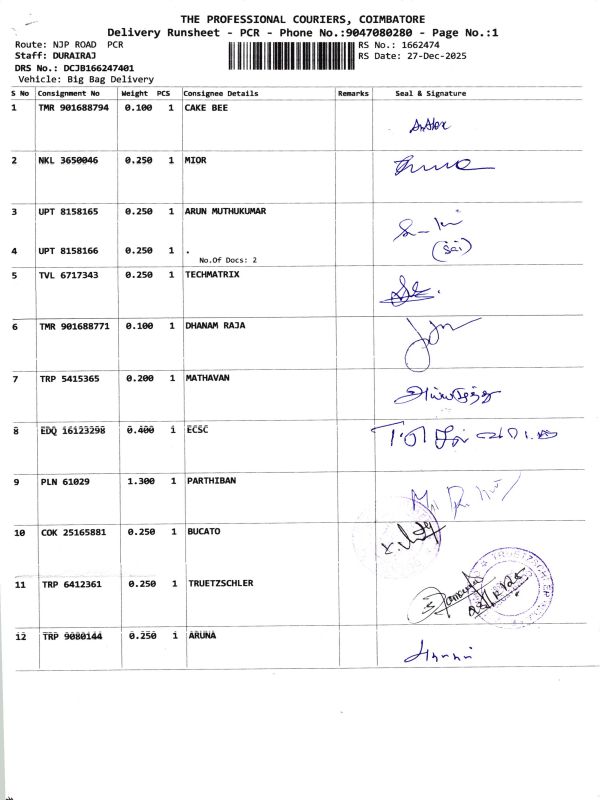 THE PROFESSIONAL COURIERS, COIMBATORE
Delivery Runsheet - PCR - Phone No.:9047080280 - Page No.:1
Route: NJP ROAD PCR
RS No.: 1662474
Staff: DURAIRAJ
RS Date: 27-Dec-2025
DRS No.: DCJB166247401
Vehicle: Big Bag Delivery
S No Consignment No Weight PCS Consignee Details Remarks Seal & Signature
1 TMR 901688794 0.100 1 CAKE BEE
2 NKL 3650046 0.250 1 MIOR
3 UPT 8158165 0.250 1 ARUN MUTHUKUMAR
(Sai)
4 UPT 8158166 0.250 1 .
No.Of Docs: 2
5 TVL 6717343 0.250 1 TECHMATRIX
6 TMR 901688771 0.100 1 DHANAM RAJA
7 TRP 5415365 0.200 1 MATHAVAN
8 EDQ 16123298 0.400 1 ECSC
9 PLN 61029 1.300 1 PARTHIBAN
10 COK 25165881 0.250 1 BUCATO
11 TRP 6412361 0.250 1 TRUETZSCHLER
12 TRP 9080144 0.250 1 ARUNA